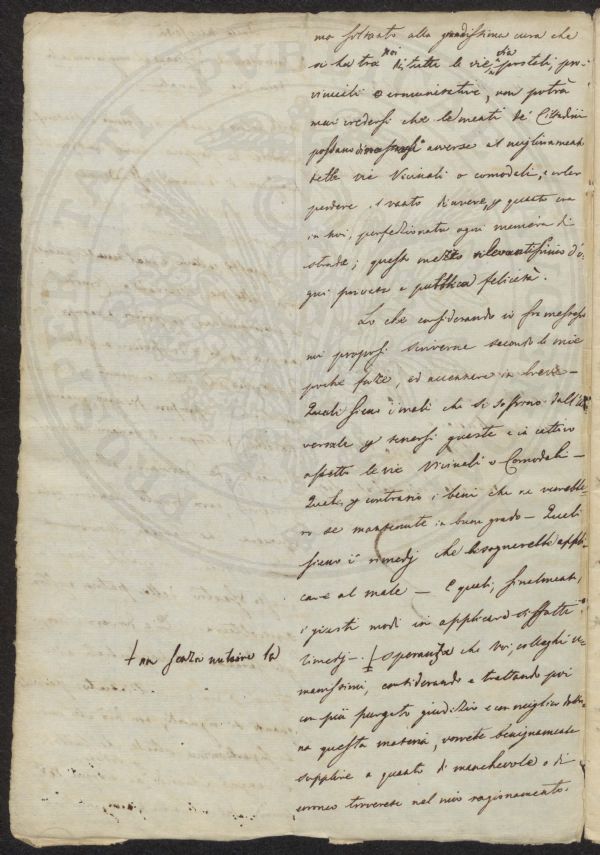 ma soltanto alla grandissima cura che
si ha tra noi di tutte le vie sia postali, pro-
vinciali o comunitative, non potrà
mai credersi che le menti de' Cittadini
possano averse al miglioramento
delle vie Vicinali o comodali, e voler
perdere il vanto d'avere, questa era
in noi, perfezionata ogni maniera di
strade; questo mezzo rilevantissimo d'o-
gni privata e pubblica felicità.
Lo che considerando io fra me stesso
mi proposi scriverne secondo le mie
poche forze, ed accennare in breve —
Quali sieno i mali che si soffrono dall'
versale p tenersi guaste e in cattivo
assetto le vie Vicinali o Comodali —
Quali, p contrario i beni che ne verrebbe-
ro se mantenute in buon grado — Quali
sieno i rimedj che bisognerebbe appli-
care al male — E quali, finalmente,
i giusti modi in applicare siffatti
rimedj. — speranza che Voi, colleghi u-
manissimi, considerando e trattando poi
con più purgato giudizio e con miglior dottri-
na questa materia, vorrete benignamente
supplire a quanto di manchevole o di
erroneo troverete nel mio ragionamento.
ma senza nutrire la